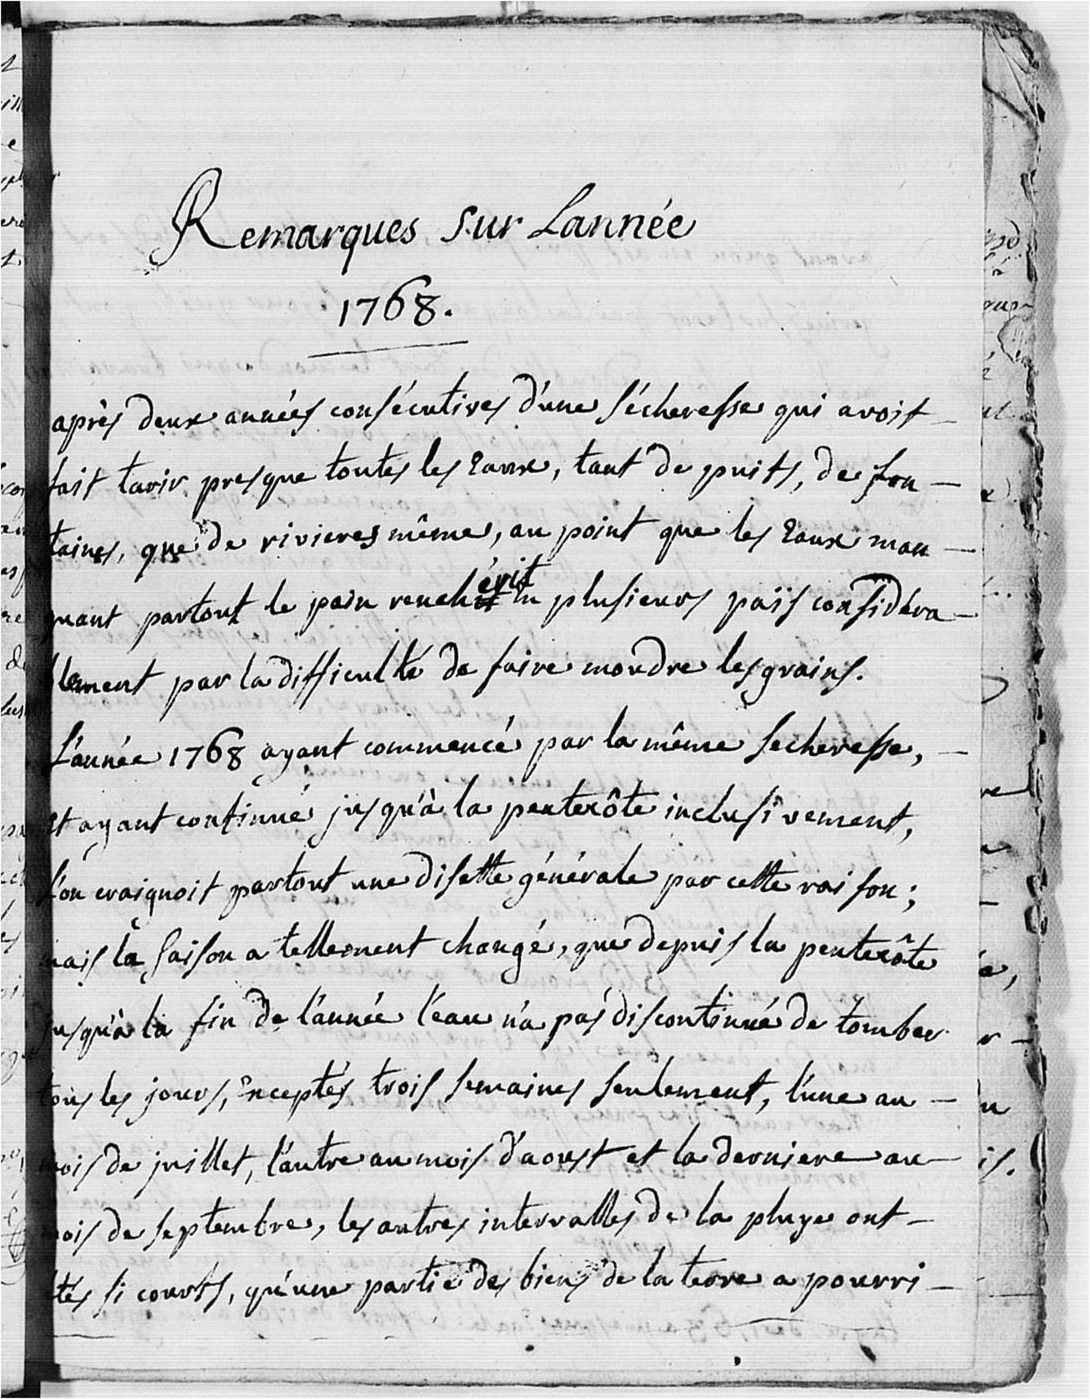 Remarques sur Lannée
1768.
après deux années consécutives d'une sécheresse qui avoit
fait tarir presque toutes les Eaux, tant de puits, de fon-
taines, que de rivieres même, au point que les Eaux man-
quant partout le pain renchérit en plusieurs païs considéra-
blement par la difficulté de faire moudre les grains.
L'année 1768 ayant commencé par la même secheresse,
et ayant continué jusqu'à la pentecôte inclusivement,
l'on craignoit partout une disette générale par cette raison ;
mais la saison a tellement changé, que depuis la pentecôte
jusqu'à la fin de l'année l'eau n'a pas discontinué de tomber
tous les jours, Exceptés trois semaines seulement, l'une au
mois de juillet, l'autre au mois d'aoust et la derniere au
mois de septembre, les autres intervalles de la pluye ont
étés si courts, qu'une partie des biens de la terre a pourri